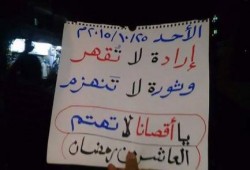 الأحد ٢٠١٥/١٠/٢٥م
إرادة لا تُقهر
وثورة لا تَنهزم
يا أقصانا لا تهتم
العاشر من رمضان